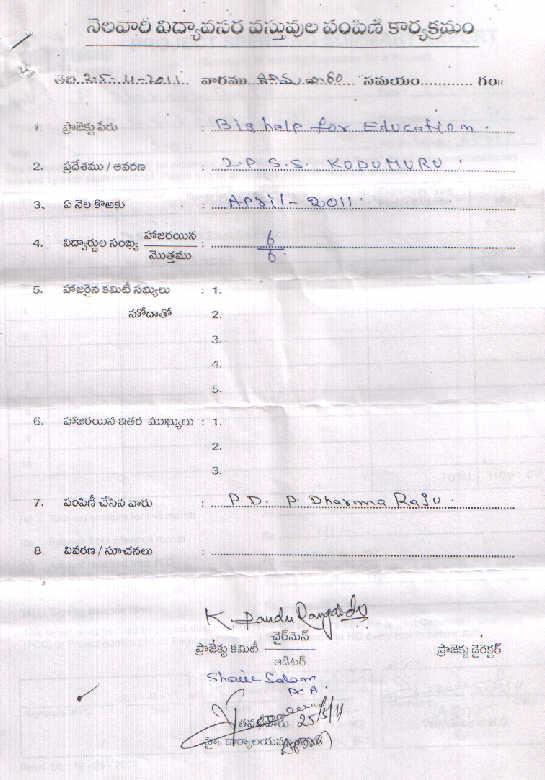 నెలవారీ విద్యావసర వస్తువుల పంపిణీ కార్యక్రమం
తేది 11-2011 వారము సమయం గం॥
1. ప్రాజెక్టు పేరు : Big help for Education.
2. ప్రదేశము / ఆవరణ : 2.P S.S. KODUMURU
3. ఏ నెల కొఱకు : April - 2011.
4. విద్యార్థుల సంఖ్య హాజరయిన : 6
మొత్తము 6
5. హాజరైన కమిటీ సభ్యులు : 1.
హోదాతో 2.
3.
4.
5.
6. హాజరయిన ఇతర ముఖ్యులు : 1.
2.
3.
7. పంపిణీ చేసిన వారు : P.D. P Dharma Raju.
8 వివరణ / సూచనలు :
K Pandu Rangadu
ఛైర్‌మెన్
ప్రాజెక్టు కమిటీ ప్రాజెక్టు డైరెక్టర్
ఆడిటర్
Shaik Salam
P.A.
25/5/11